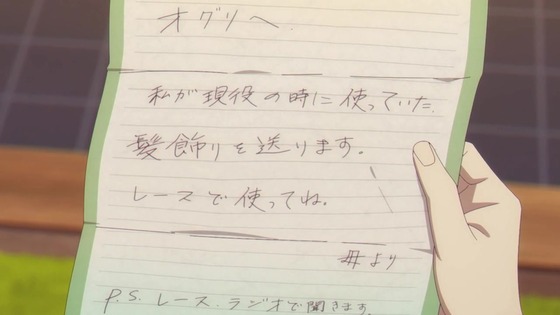 オグリへ
私が現役の時に使っていた
髪飾りを送ります。
レースで使ってね。
母より
P.S. レース、ラジオで聞きます。